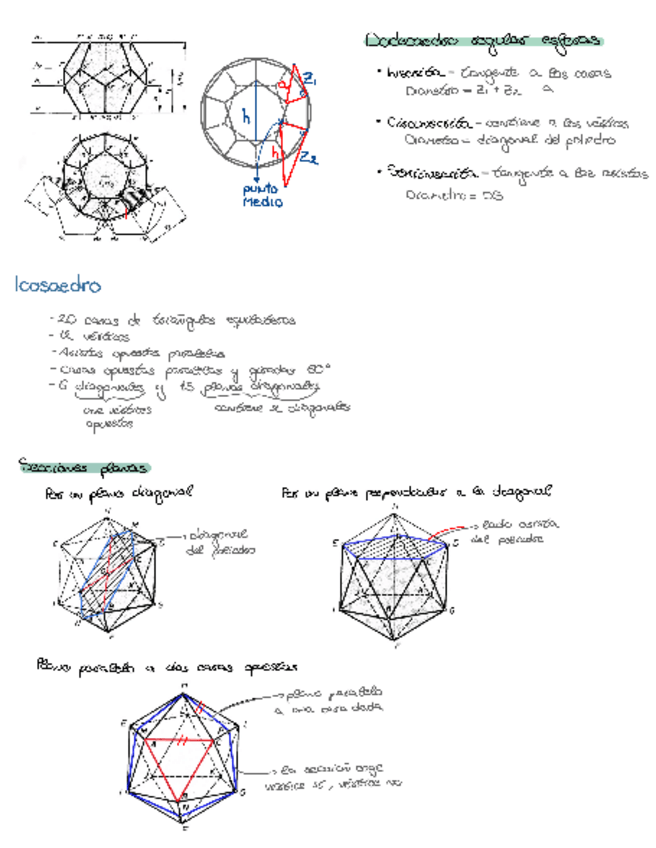 Dodecaedro regular esferas
• Inscrita - tangente a las caras
Diametro = Z1 + Z2 a
• Circunscrita - contiene a los vértices
Diametro = diagonal del poliedro
• Semiinscrita - tangente a las aristas
Diametro =
a
Z1
h
h
Z2
punto
medio
Icosaedro
- 20 caras de triángulos equiláteros
- 12 vértices
- Aristas opuestas paralelas
- Caras opuestas paralelas y giradas 60°
- 6 diagonales y 15 planos diagonales
une vértices contiene diagonales
opuestos
Secciones planas
Por un plano diagonal
Por un plano perpendicular a la diagonal
→ diagonal
del poliedro
→ lado arista
del poliedro
Plano paralelo a dos caras opuestas
→ plano paralelo
a una cara dada
→ la sección coge
vértice sí, vértice no